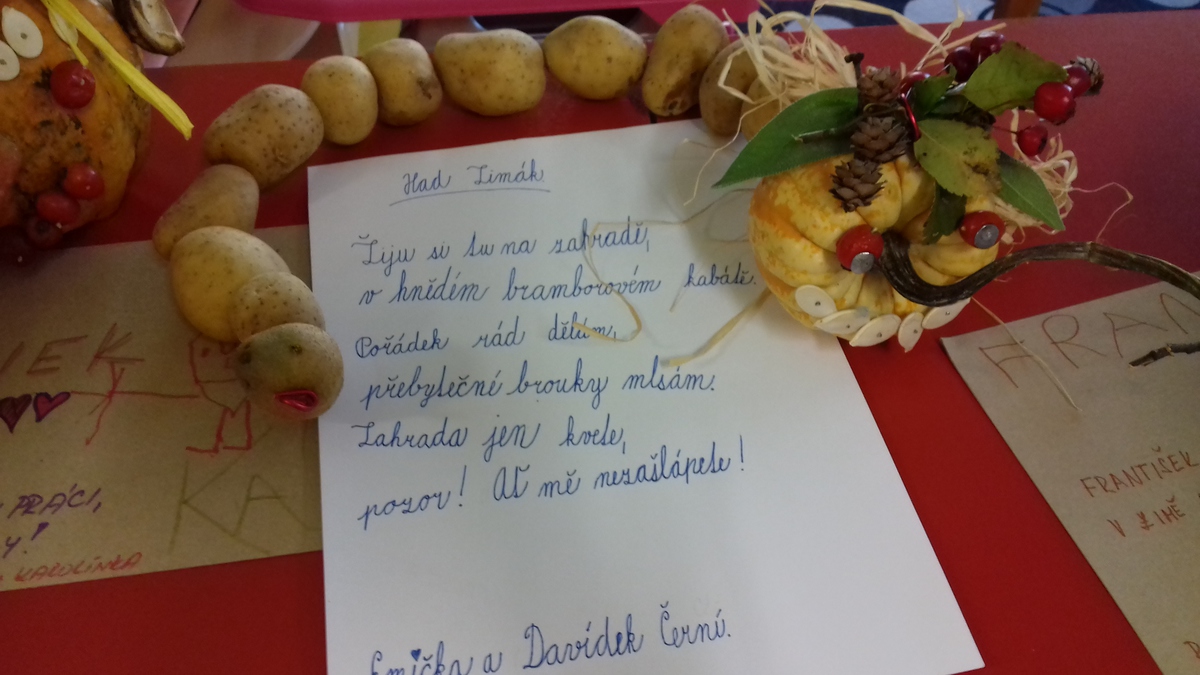 Had Zimák
Žiju si tu na zahradě,
v hnědém bramborovém kabátě.
Pořádek rád dělám,
přebytečné brouky mlsám.
Zahrada jen kvete,
pozor! Ať mě nezašlápete!
Emička a Davídek Černí.
KA
PRÁCI,
KAROLÍNKA
FRAN
FRANTIŠEK
V ZIMĚ